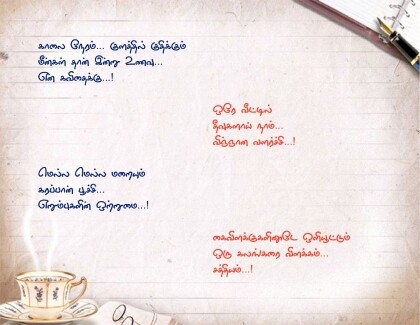 காலை நேரம்... குளத்தில் குதிக்கும்
மீன்கள் தான் இன்று உணவு...
என் கவிதைக்கு...!
ஒரே வீட்டில்
தீவுகளாய் நாம்...
விஞ்ஞான வளர்ச்சி...!
மெல்ல மெல்ல மறையும்
கரப்பான் பூச்சி...
எறும்புகளின் ஒற்றுமை...!
கைவிளக்குகளினூடே ஒளியூட்டும்
ஒரு கலங்கரை விளக்கம்...
சத்தியம்...!